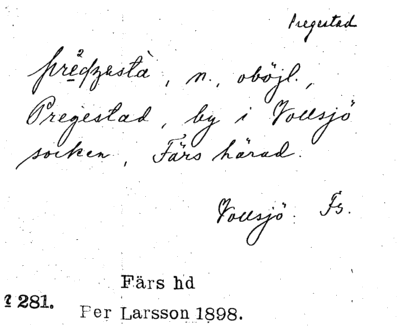 Pregestad
prędzestà, n., oböjl.,
Pregestad, by i Vollsjö
socken, Färs härad.
Vollsjö. Fs.
Färs hd
281.
Per Larsson 1898.